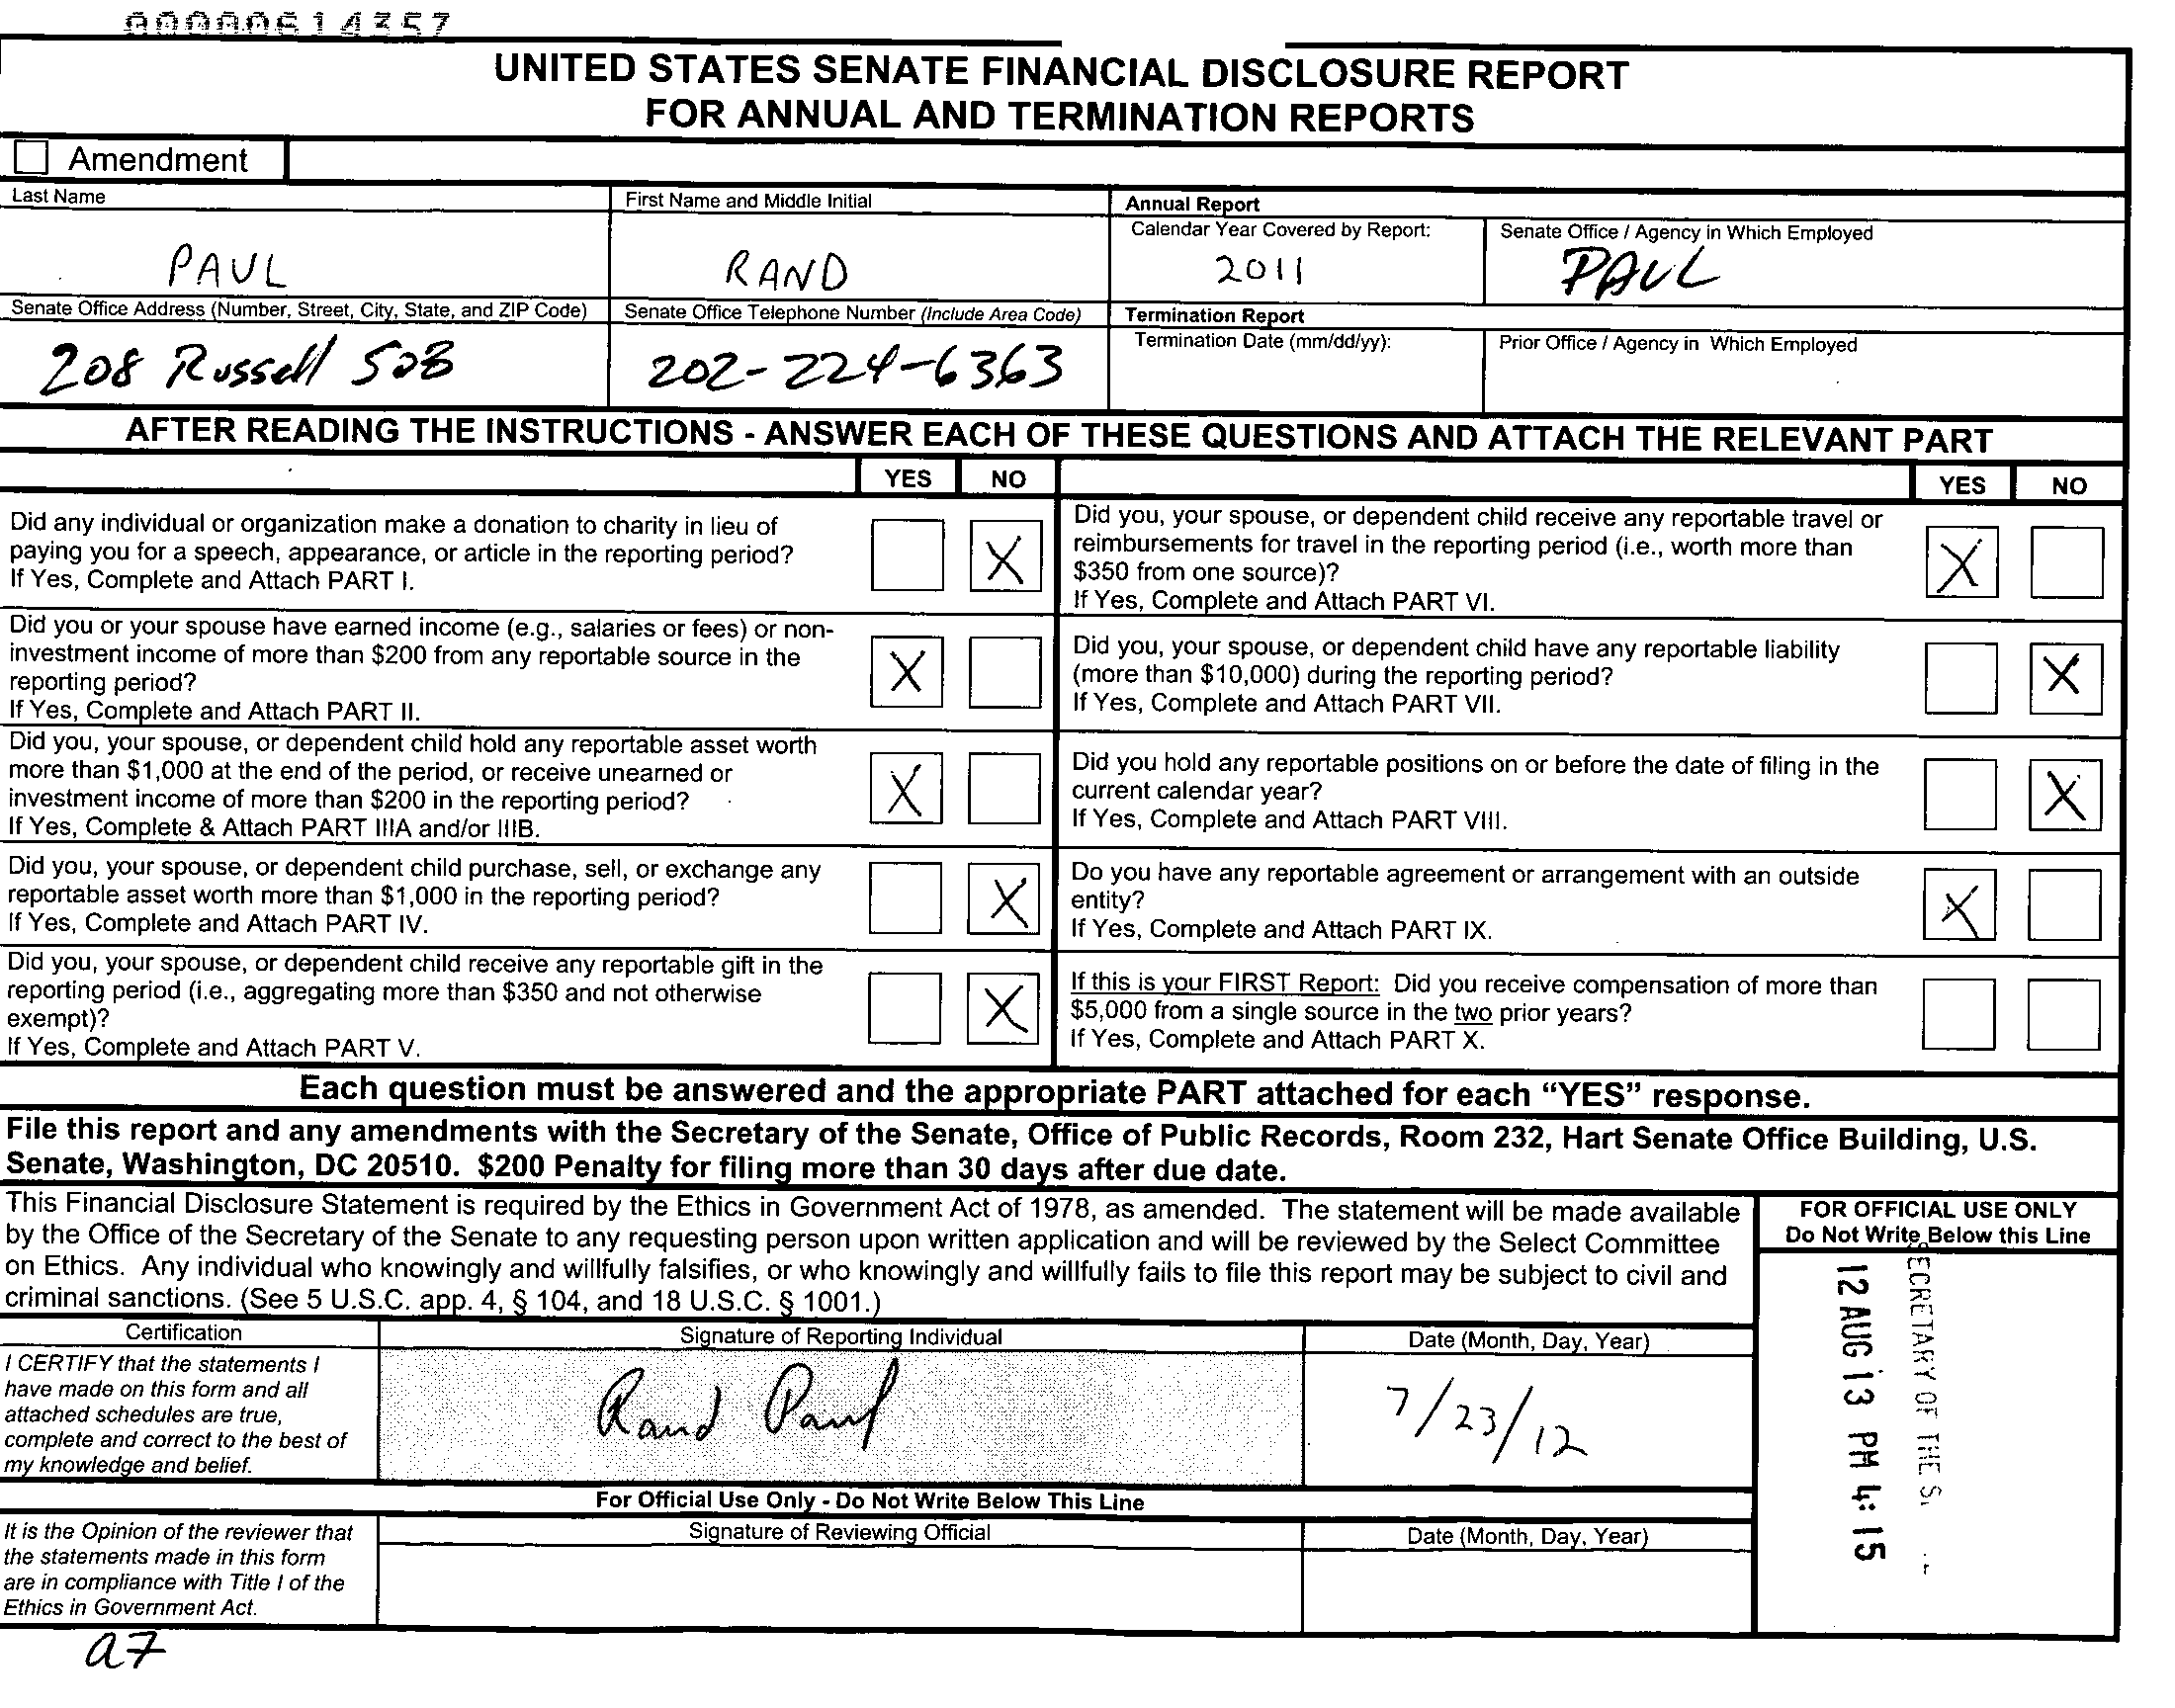 000000614357
UNITED STATES SENATE FINANCIAL DISCLOSURE REPORT
FOR ANNUAL AND TERMINATION REPORTS
Amendment
Last Name
PAUL
First Name and Middle Initial
RAND
Annual Report
Calendar Year Covered by Report:
2011
Senate Office / Agency in Which Employed
PAUL
Senate Office Address (Number, Street, City, State, and ZIP Code)
208 Russell SOB
Senate Office Telephone Number (Include Area Code)
202-224-6363
Termination Report
Termination Date (mm/dd/yy):
Prior Office / Agency in Which Employed
AFTER READING THE INSTRUCTIONS - ANSWER EACH OF THESE QUESTIONS AND ATTACH THE RELEVANT PART
YES NO
Did any individual or organization make a donation to charity in lieu of
paying you for a speech, appearance, or article in the reporting period?
If Yes, Complete and Attach PART I.
X
Did you or your spouse have earned income (e.g., salaries or fees) or non-
investment income of more than $200 from any reportable source in the
reporting period?
If Yes, Complete and Attach PART II.
X
Did you, your spouse, or dependent child hold any reportable asset worth
more than $1,000 at the end of the period, or receive unearned or
investment income of more than $200 in the reporting period?
If Yes, Complete & Attach PART IIIA and/or IIIB.
X
Did you, your spouse, or dependent child purchase, sell, or exchange any
reportable asset worth more than $1,000 in the reporting period?
If Yes, Complete and Attach PART IV.
X
Did you, your spouse, or dependent child receive any reportable gift in the
reporting period (i.e., aggregating more than $350 and not otherwise
exempt)?
If Yes, Complete and Attach PART V.
X
YES NO
Did you, your spouse, or dependent child receive any reportable travel or
reimbursements for travel in the reporting period (i.e., worth more than
$350 from one source)?
If Yes, Complete and Attach PART VI.
X
Did you, your spouse, or dependent child have any reportable liability
(more than $10,000) during the reporting period?
If Yes, Complete and Attach PART VII.
X
Did you hold any reportable positions on or before the date of filing in the
current calendar year?
If Yes, Complete and Attach PART VIII.
X
Do you have any reportable agreement or arrangement with an outside
entity?
If Yes, Complete and Attach PART IX.
X
If this is your FIRST Report: Did you receive compensation of more than
$5,000 from a single source in the two prior years?
If Yes, Complete and Attach PART X.
Each question must be answered and the appropriate PART attached for each “YES” response.
File this report and any amendments with the Secretary of the Senate, Office of Public Records, Room 232, Hart Senate Office Building, U.S.
Senate, Washington, DC 20510. $200 Penalty for filing more than 30 days after due date.
This Financial Disclosure Statement is required by the Ethics in Government Act of 1978, as amended. The statement will be made available
by the Office of the Secretary of the Senate to any requesting person upon written application and will be reviewed by the Select Committee
on Ethics. Any individual who knowingly and willfully falsifies, or who knowingly and willfully fails to file this report may be subject to civil and
criminal sanctions. (See 5 U.S.C. app. 4, § 104, and 18 U.S.C. § 1001.)
FOR OFFICIAL USE ONLY
Do Not Write Below this Line
ECRETARY OF THE S
12 AUG 13 PM 4:15
Certification
I CERTIFY that the statements I
have made on this form and all
attached schedules are true,
complete and correct to the best of
my knowledge and belief.
Signature of Reporting Individual
Rand Paul
Date (Month, Day, Year)
7/23/12
For Official Use Only - Do Not Write Below This Line
It is the Opinion of the reviewer that
the statements made in this form
are in compliance with Title I of the
Ethics in Government Act.
Signature of Reviewing Official
Date (Month, Day, Year)
a7